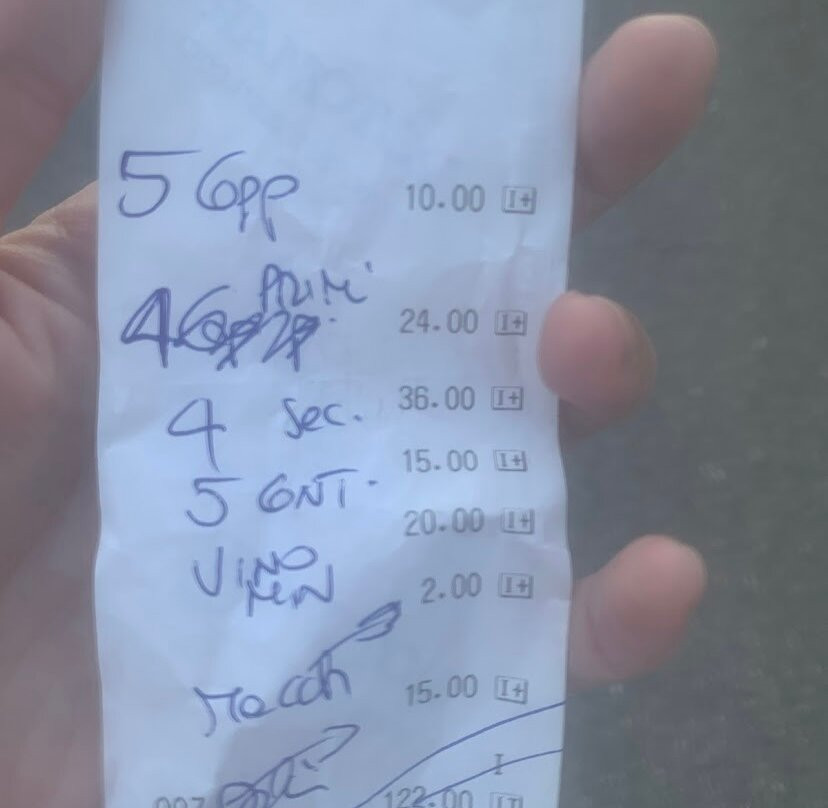 5 Gpp 10.00 I+
PRIMI
4 24.00 I+
4 Sec. 36.00 I+
5 GNT. 15.00 I+
VINO 20.00 I+
MN 2.00 I+
Macch 15.00 I+
I
122.00